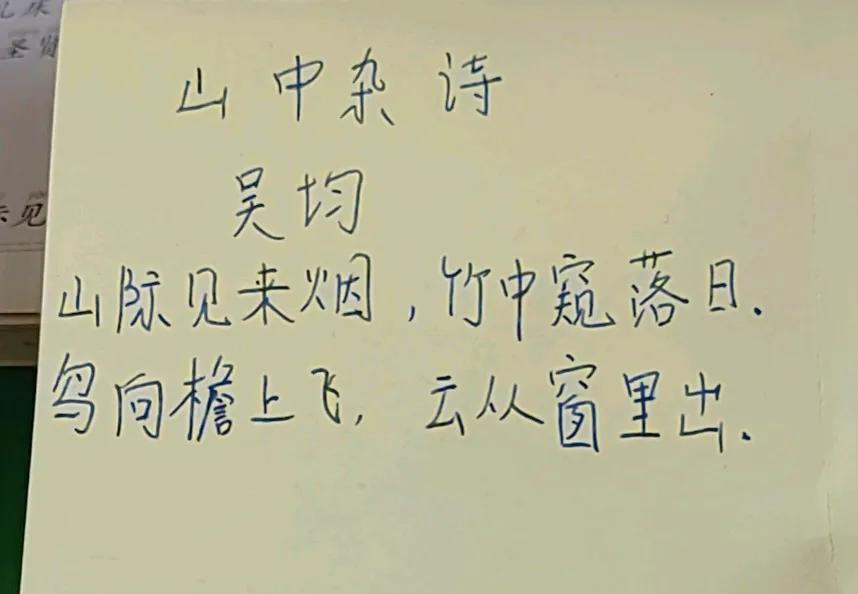 山中杂诗
吴均
山际见来烟,竹中窥落日.
鸟向檐上飞,云从窗里出.
见